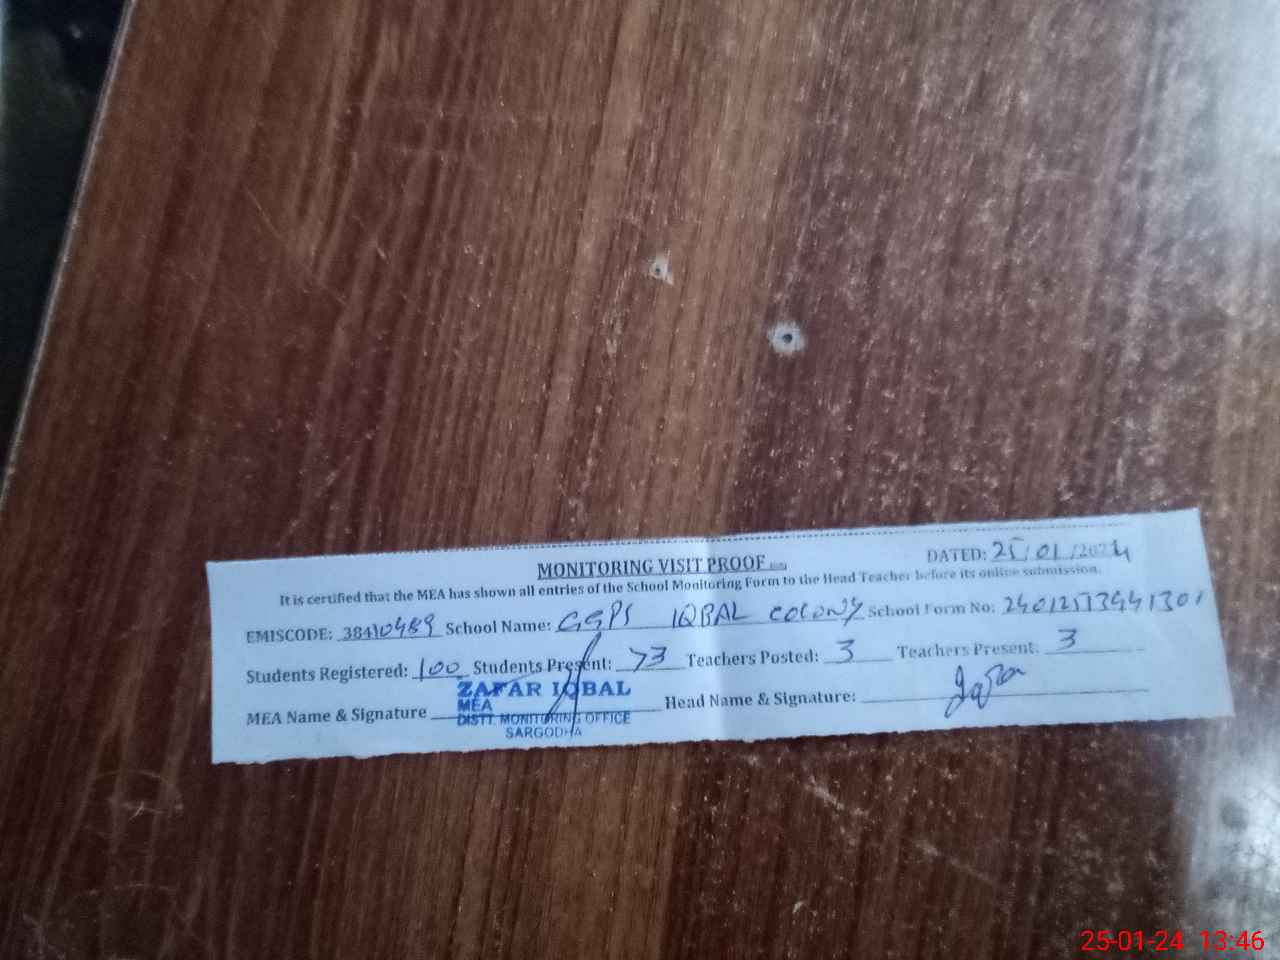 MONITORING VISIT PROOF
DATED: 25/01/2024
It is certified that the MEA has shown all entries of the School Monitoring Form to the Head Teacher before its online submission.
EMISCODE: 38410489 School Name: GGPS IQBAL COLONY School Form No:
Students Registered: 100 Students Present: 73 Teachers Posted: 3 Teachers Present: 3
MEA Name & Signature ZAFAR IQBAL Head Name & Signature:
MEA
DISTT. MONITORING OFFICE
SARGODHA
25-01-24 13:46